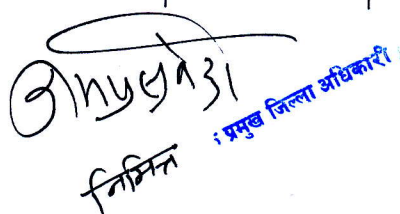 निमित्त : प्रमुख जिल्ला अधिकारी